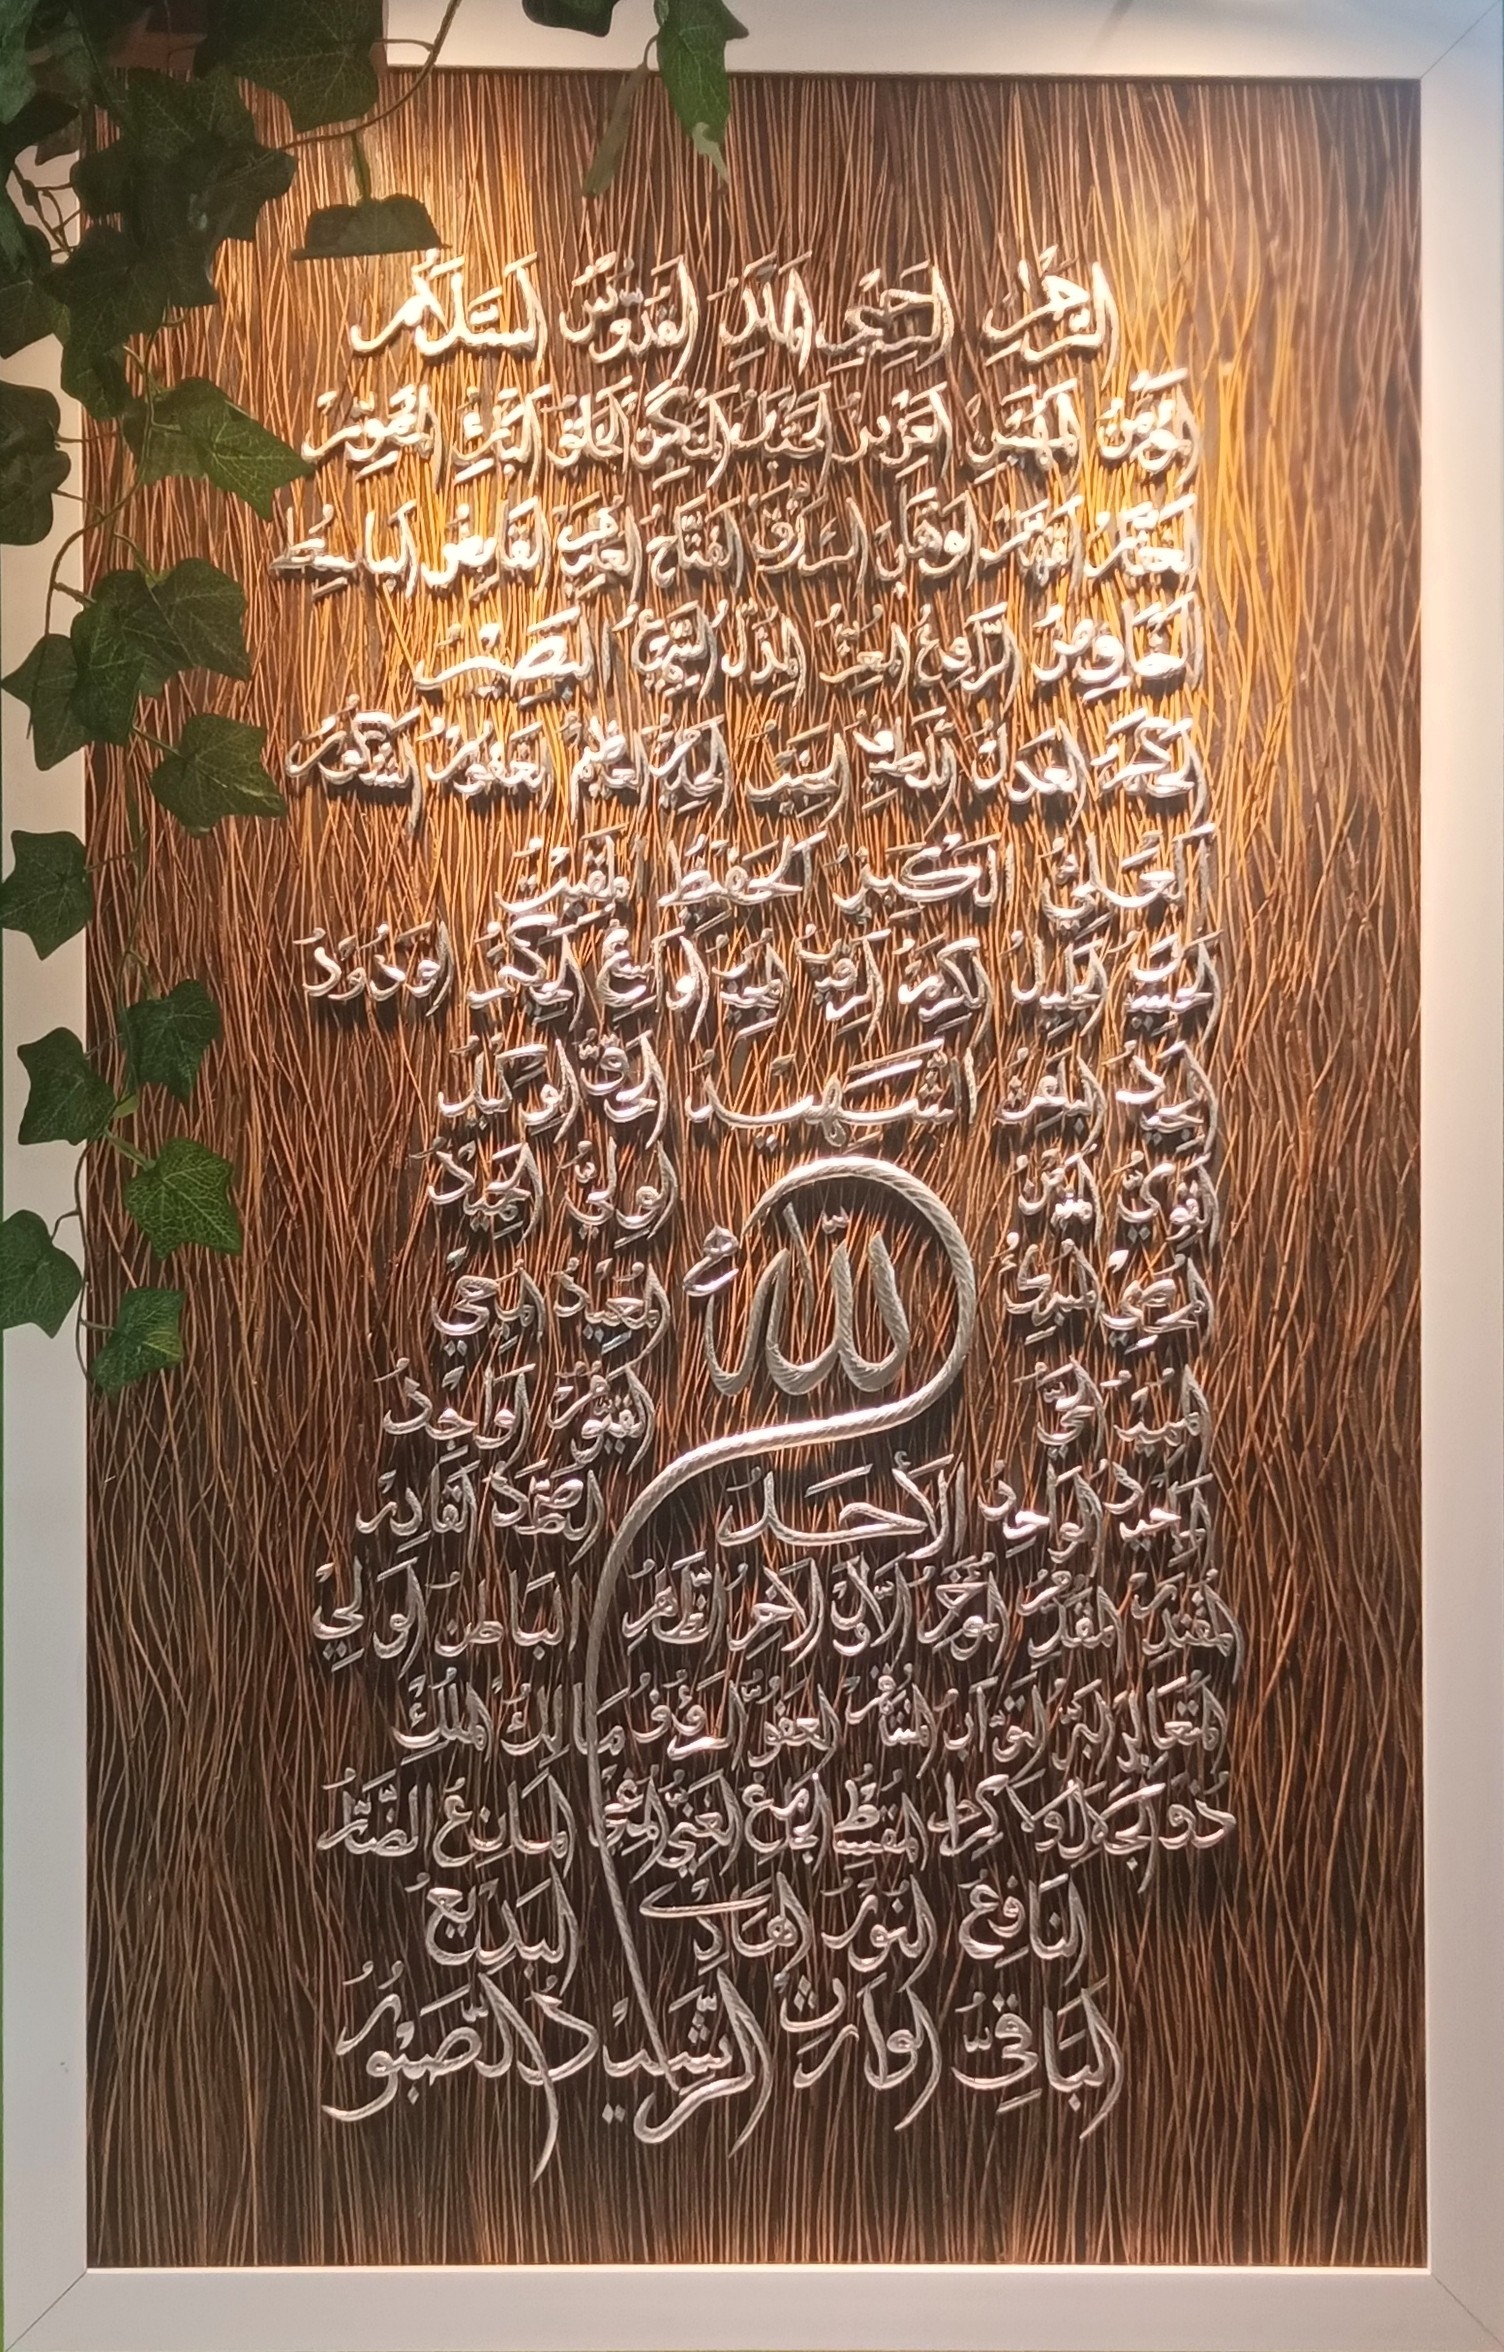 الرحمن الرحيم الملك القدوس السلام
المؤمن المهيمن العزيز الجبار المتكبر الخالق البارئ المصور
الغفار القهار الوهاب الرزاق الفتاح العليم القابض الباسط
الخافض الرافع المعز المذل السميع البصير
الحكم العدل اللطيف الخبير الحليم العظيم الغفور الشكور
العلي الكبير الحفيظ المقيت
الحسيب الجليل الكريم الرقيب المجيب الواسع الحكيم الودود
المجيد الباعث الشهيد الحق الوكيل
القوي المتين الولي الحميد
الله
المحصي المبدئ المعيد المحيي
المميت الحي القيوم الواجد
الواحد الأحد الصمد القادر
المقتدر المقدم المؤخر الأول الآخر الظاهر الباطن الوالي
المتعالي البر التواب العفو الرؤوف مالك الملك
ذو الجلال والاكرام المقسط الجامع الغني المغني المانع الضار
النافع النور الهادي البديع
الباقي الوارث الرشيد الصبور